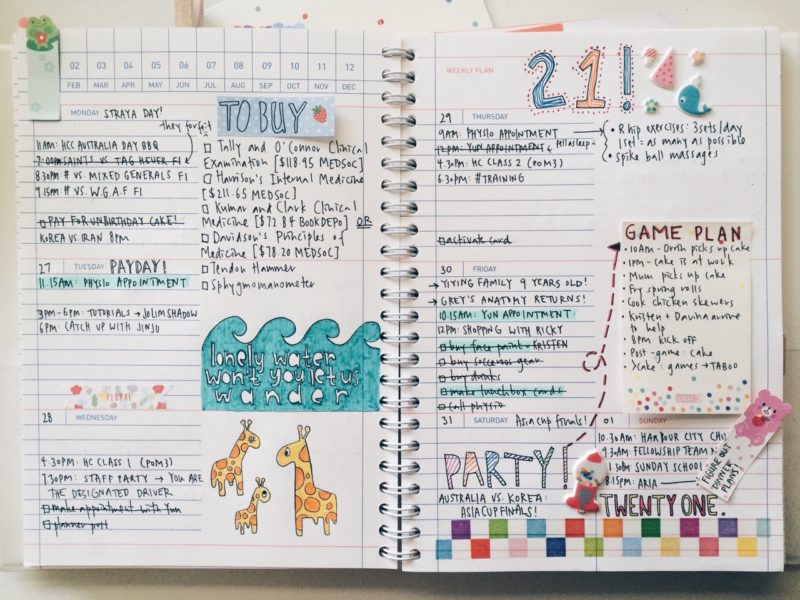 02 03 04 05 06 07 08 09 10 11 12
FEB MAR APR MAY JUN JUL AUG SEP OCT NOV DEC
MONDAY STRAYA DAY!
they forfeit
11AM: HCC AUSTRALIA DAY BBQ
7:00PM SAINTS VS TAG HEUER F1
8:30PM # VS MIXED GENERALS F1
9.15AM # VS W.G.A.F F1
PAY FOR UNBIRTHDAY CAKE!
KOREA VS IRAN 8PM
27 TUESDAY PAYDAY!
11.15AM: PHYSIO APPOINTMENT
3PM-6PM: TUTORIALS → JOLIMSHADOW
6PM: CATCH UP WITH JINJU
FLORAL
28 WEDNESDAY
4.30PM: HC CLASS 1 (POM3)
7.30PM: STAFF PARTY → YOU ARE
THE DESIGNATED DRIVER
make appointment with Yun
planner post
TO BUY
Tally and O'Connor Clinical
Examination [$118.95 MEDSOC]
Harrison's Internal Medicine
[$211.65 MEDSOC]
Kumar and Clark Clinical
Medicine [$72.84 BOOKDEPO] OR
Davidson's Principles of
Medicine [$78.20 MEDSOC]
Tendon Hammer
Sphygmomanometer
lonely water
won't you let us
wander
WEEKLY PLAN
21!
29 THURSDAY
9AM: PHYSIO APPOINTMENT
12PM: YUN APPOINTMENT fell asleep
4.30PM: HC CLASS 2 (POM3)
6.30PM: # TRAINING
activate card
• R hip exercises: 3sets/day
1set = as many as possible
• spike ball massages
30 FRIDAY
→ YIYING FAMILY 9 YEARS OLD!
→ GREY'S ANATOMY RETURNS!
10.15AM: YUN APPOINTMENT
12PM: SHOPPING WITH RICKY
buy face paint - KRISTEN
buy socceroos gear
buy drinks
make lunchbox cards
call physio
GAME PLAN
• 10AM - Orrin picks up cake
• 1PM - cake is at work
• Mum picks up cake
• Fry spring rolls
• Cook chicken skewers
• Kristen + Davina arrive
to help
• 8PM kick off
• Post-game: cake
• Cake: games → TABOO
31 SATURDAY Asia Cup Finals!
PARTY!
AUSTRALIA VS. KOREA:
ASIA CUP FINALS!
01 SUNDAY
10.30AM: HARBOUR CITY
9.30AM: FELLOWSHIP TEAM
1.30PM: SUNDAY SCHOOL
8.15PM: ARIA
FIGURE OUT
DINNER
PLANS!
TWENTY ONE.